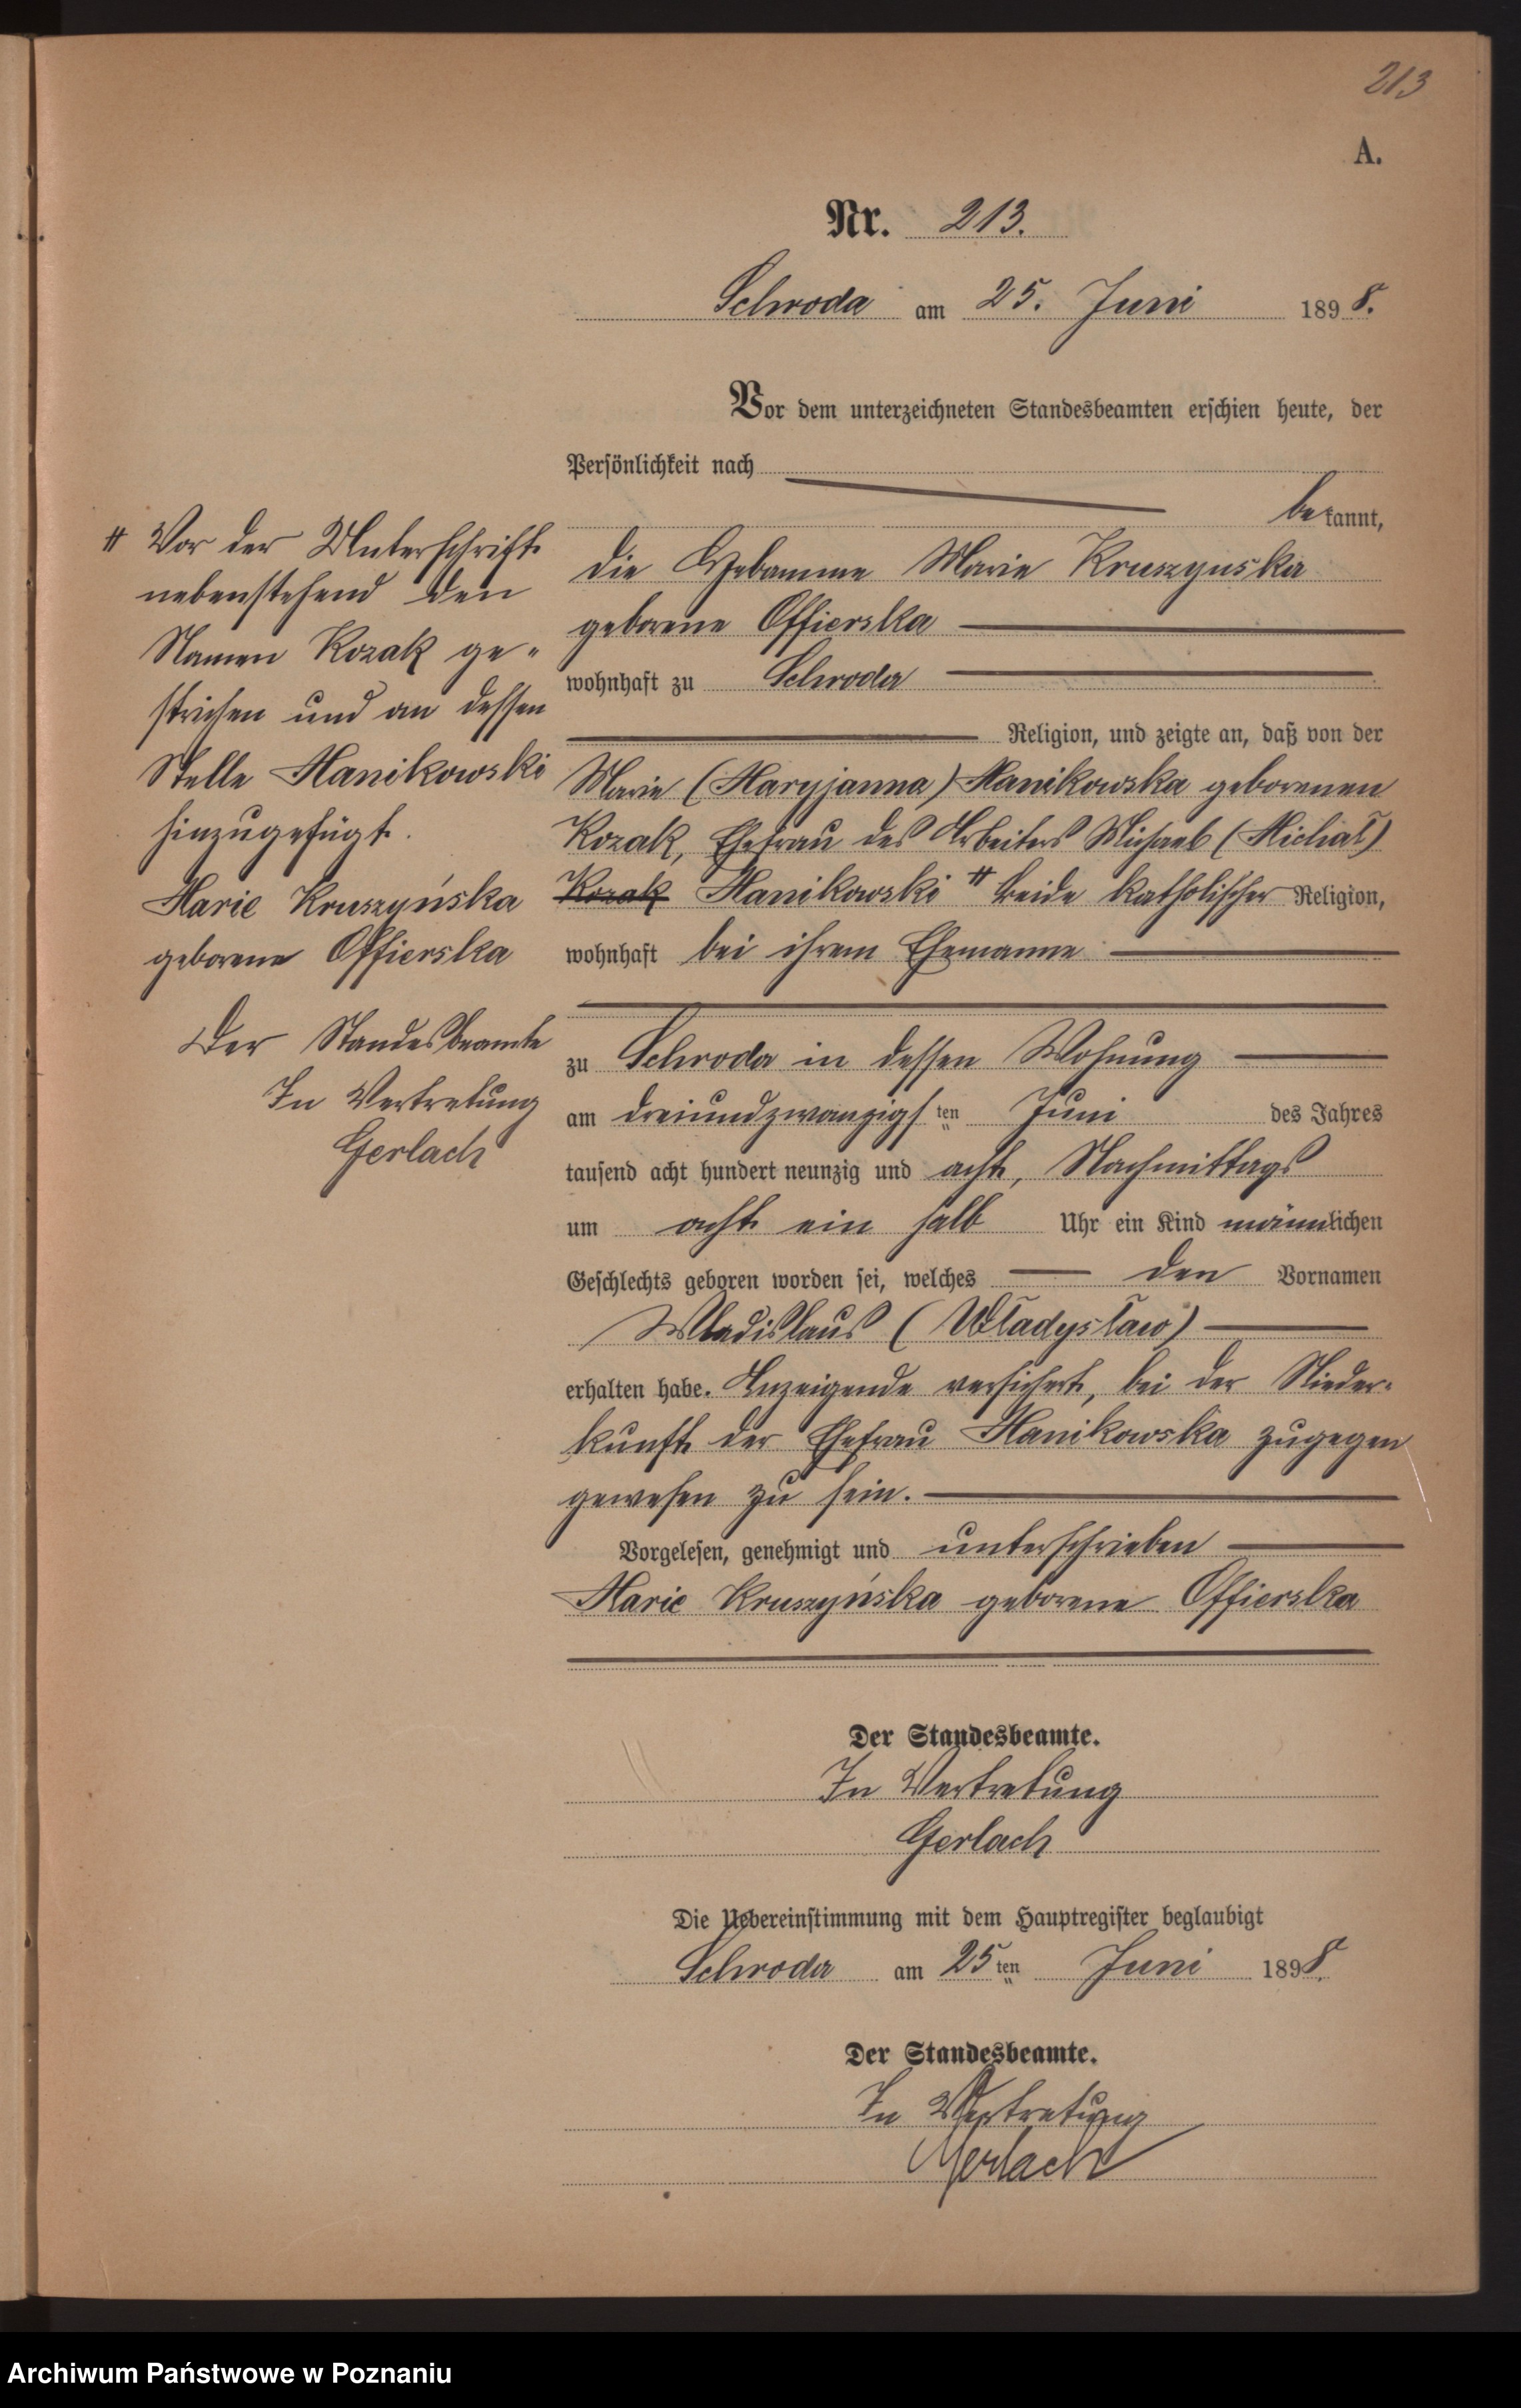 213
A.
Nr. 213.
Schroda am 25. Juni 1898.
Vor dem unterzeichneten Standesbeamten erschien heute, der
Persönlichkeit nach
bekannt,
die Hebamme Marie Kruszynska
geborene Offierska
wohnhaft zu Schroda
Religion, und zeigte an, daß von der
Marie (Maryjanna) Manikowska geborenen
Kozak, Ehefrau des Arbeiters Michael (Michał)
Kozak Manikowski # beide katholischer Religion,
wohnhaft bei ihrem Ehemanne
zu Schroda in dessen Wohnung
am dreiundzwanzigsten Juni des Jahres
tausend acht hundert neunzig und acht, Nachmittags
um acht ein halb Uhr ein Kind männlichen
Geschlechts geboren worden sei, welches den Vornamen
Wladislaus (Władysław)
erhalten habe. Anzeigende versichert, bei der Nieder-
kunft der Ehefrau Manikowska zugegen
gewesen zu sein.
Vorgelesen, genehmigt und unterschrieben
Marie Kruszyńska geborene Offierska
Der Standesbeamte.
In Vertretung
Gerlach
Die Uebereinstimmung mit dem Hauptregister beglaubigt
Schroda am 25ten Juni 1898.
Der Standesbeamte.
In Vertretung
Gerlach
# Vor der Unterschrift
nebenstehend den
Namen Kozak ge-
strichen und an dessen
Stelle Manikowski
hinzugefügt.
Marie Kruszyńska
geborene Offierska
Der Standesbeamte
In Vertretung
Gerlach
Archiwum Państwowe w Poznaniu